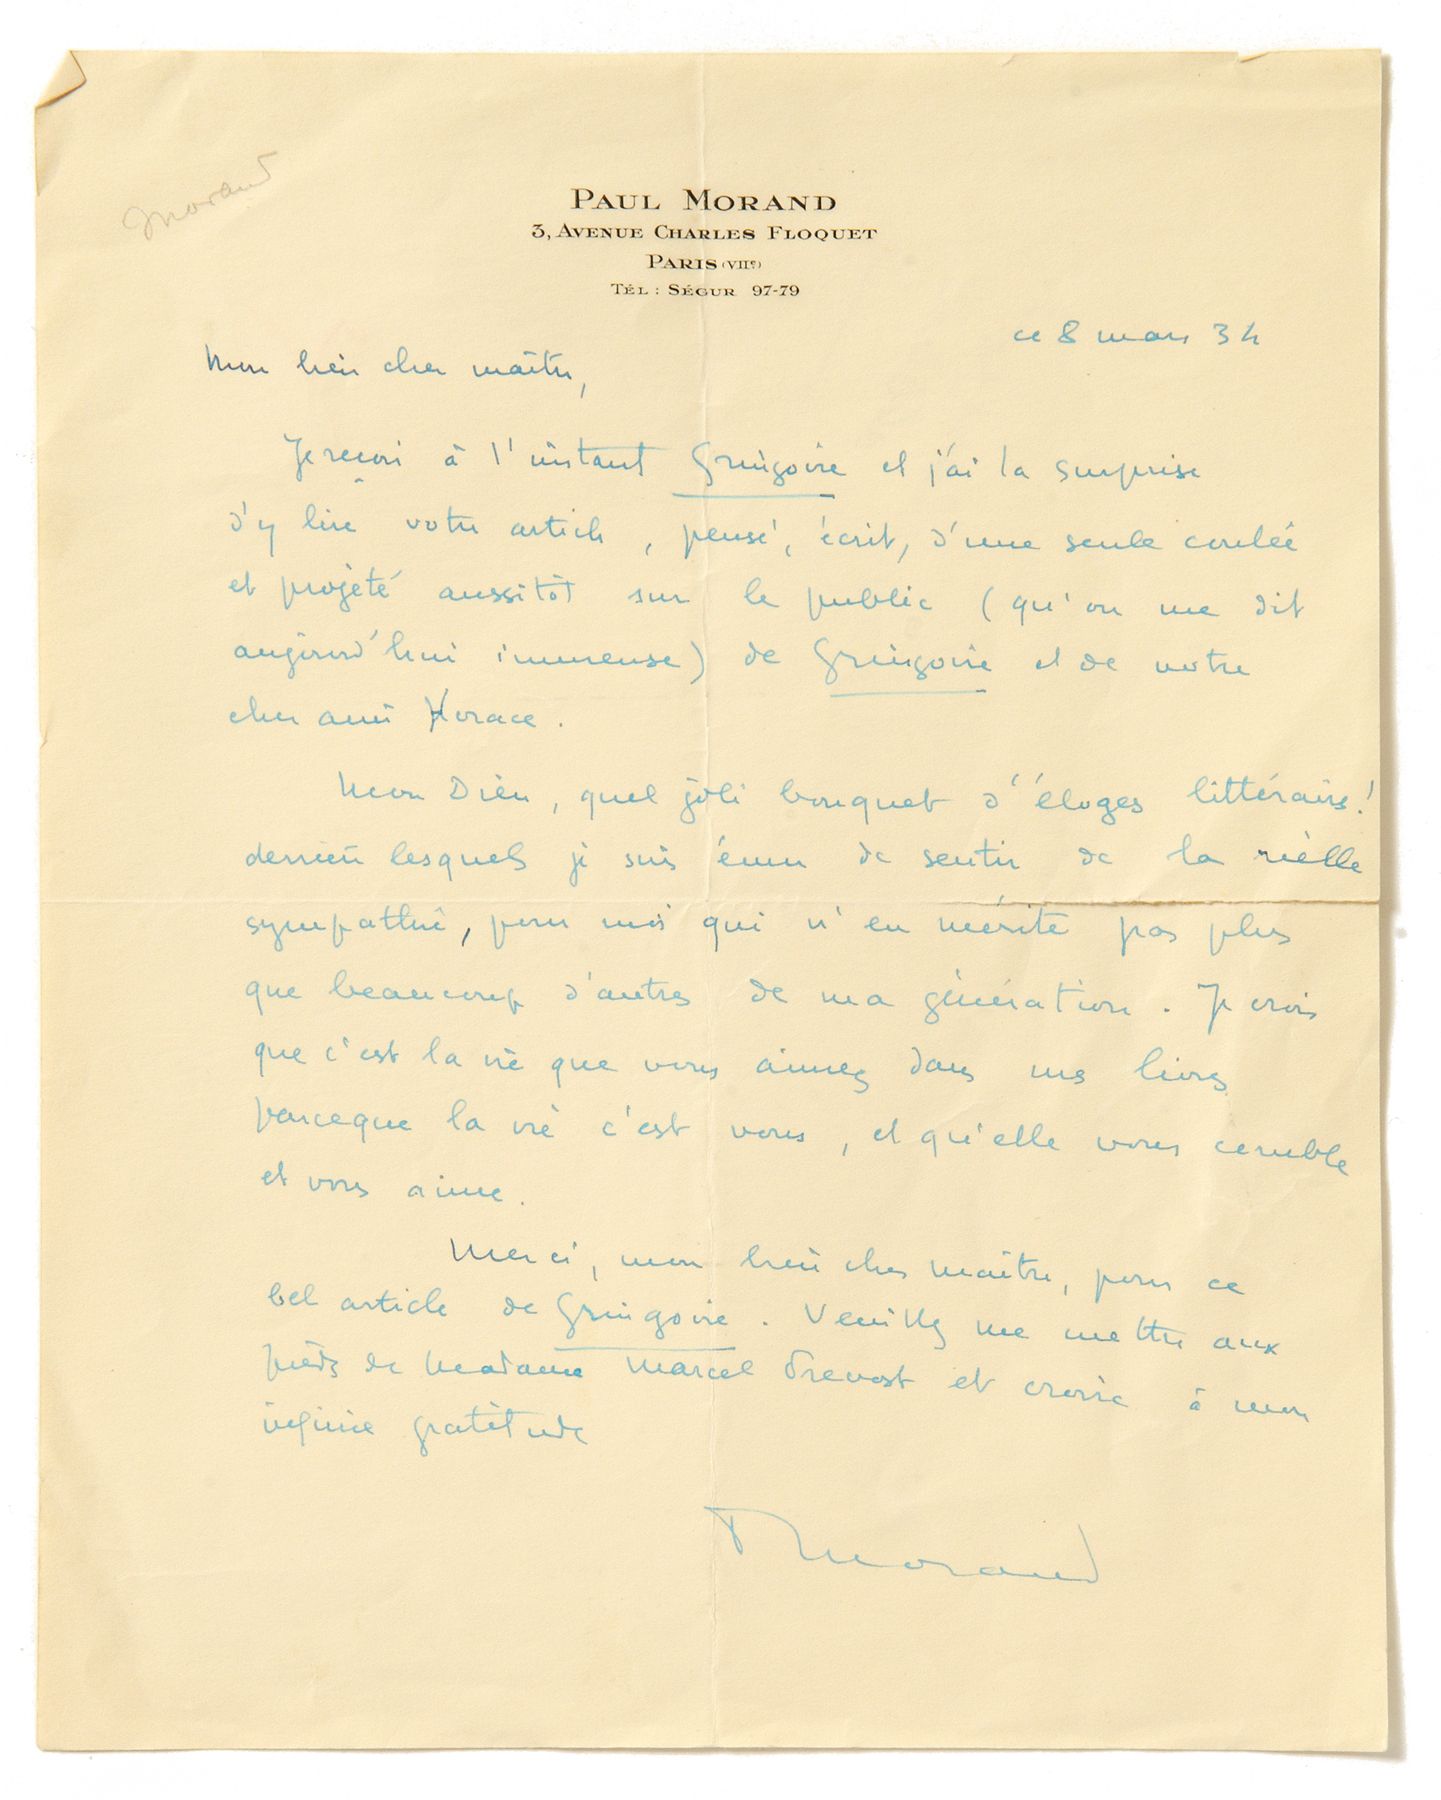 Morand
PAUL MORAND
3, AVENUE CHARLES FLOQUET
PARIS (VIIe)
TÉL : SÉGUR 97-79
ce 8 mars 34
Mon bien cher maître,
Je reçois à l'instant Gringoire et j'ai la surprise
d'y lire votre article, pensé, écrit, d'une seule coulée
et projeté aussitôt sur le public (qu'on me dit
aujourd'hui immense) de Gringoire et de notre
cher ami Horace.
Mon Dieu, quel joli bouquet d'éloges littéraires!
derrière lesquels je suis ému de sentir de la réelle
sympathie, pour moi qui n'en mérite pas plus
que beaucoup d'autres de ma génération. Je crois
que c'est la vie que vous aimez dans mes livres
parceque la vie c'est vous, et qu'elle vous comble
et vous aime.
Merci, mon bien cher maître, pour ce
bel article de Gringoire. Veuillez me mettre aux
pieds de Madame Marcel Prevost et croire à mon
infinie gratitude
P Morand